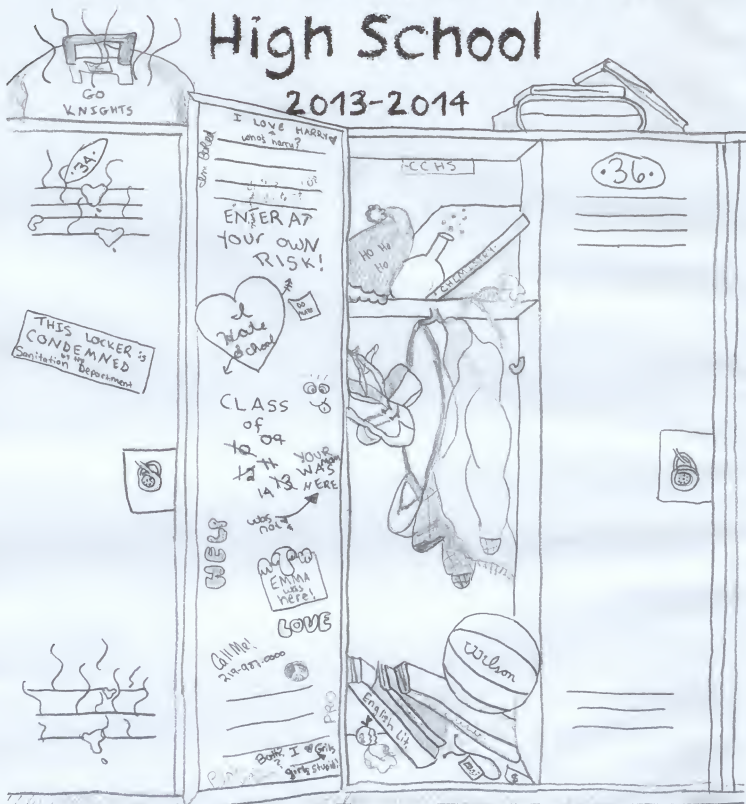 High School
2013-2014
GO
KNIGHTS
.34.
THIS LOCKER is
CONDEMNED
by the
Sanitation Department
I LOVE HARRY
who's harry?
ENTER AT
YOUR OWN
RISK!
I
Hate
School
CLASS
of
10 09
12 11
14 13
YOUR mom
WAS
HERE
was
not
HELP
EMMA
was
here!
LOVE
Call Me!
219-987-0000
PRO
Both? I ♥ Girls
?
girls stupid!
CCHS
HO HO
HO
CHEMISTRY
Wilson
English Lit.
.36.